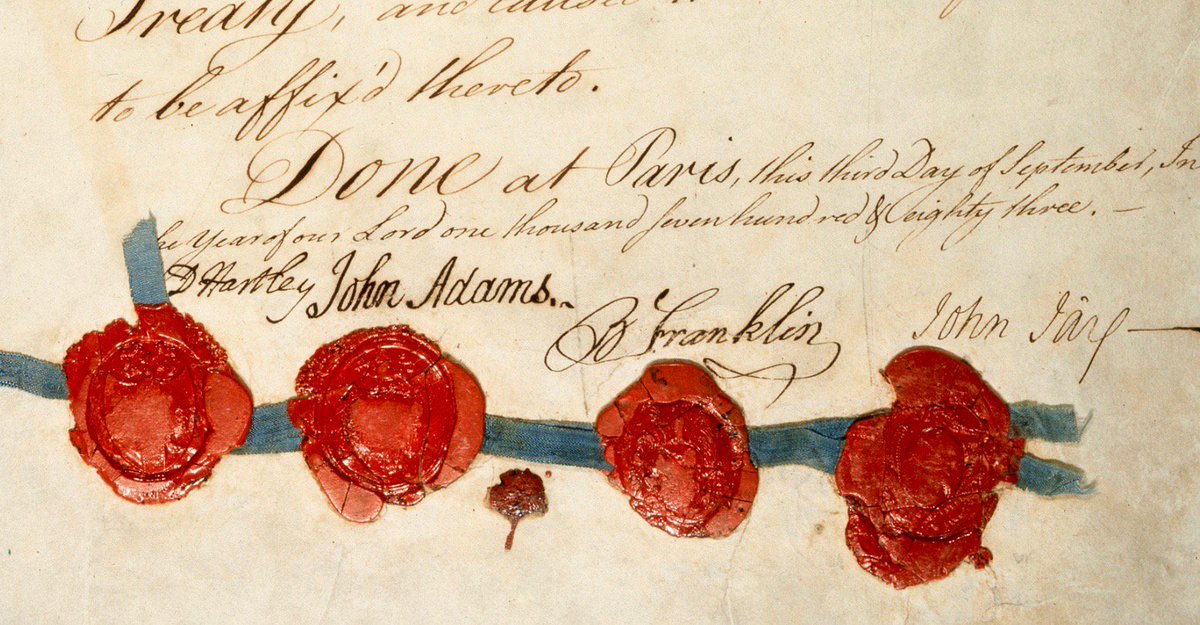 Treaty, and caused
to be affix'd thereto.
Done at Paris, this third Day of September, In
he Year of our Lord one thousand seven hundred & eighty three. —
D Hartley John Adams. B Franklin John Jay —